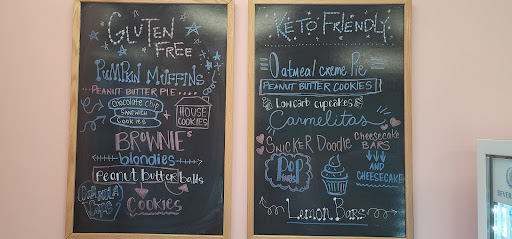 GLUTEN
FREE
PUMPKIN MUFFINS
PEANUT BUTTER PIE
chocolate chip
SANDWICH
COOKIES
HOUSE
COOKIES
BROWNIES
blondies
Peanut Butter balls
COOKIES
KETO FRIENDLY
Oatmeal creme Pie
PEANUT BUTTER COOKIES
Lowcarb cupcakes
Carmelitas
SNICKER DOODLE
CHEESECAKE
BARS
AND
CHEESECAKE
POP
Lemon Bars